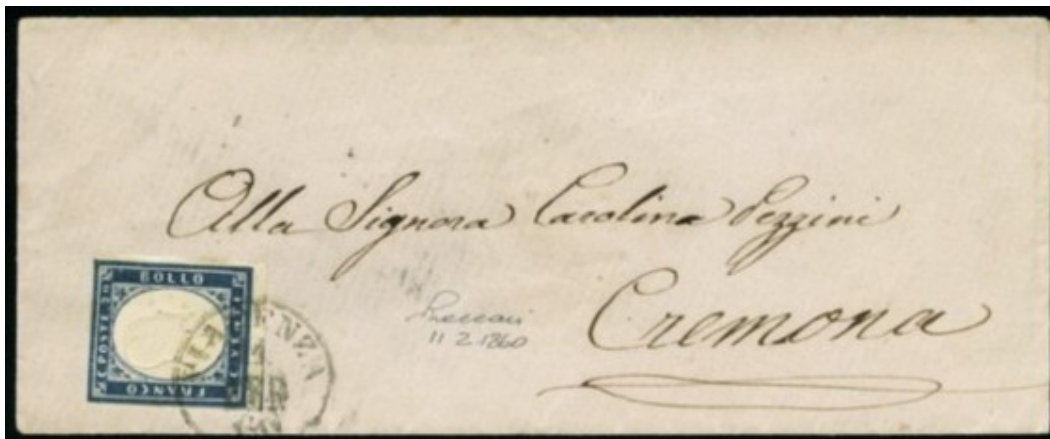 Alla Signora Carolina Pezzini
Cremona
11 2 1860
BOLLO
C POSTE 20
C VENTI
FRANCO
PIACENZA